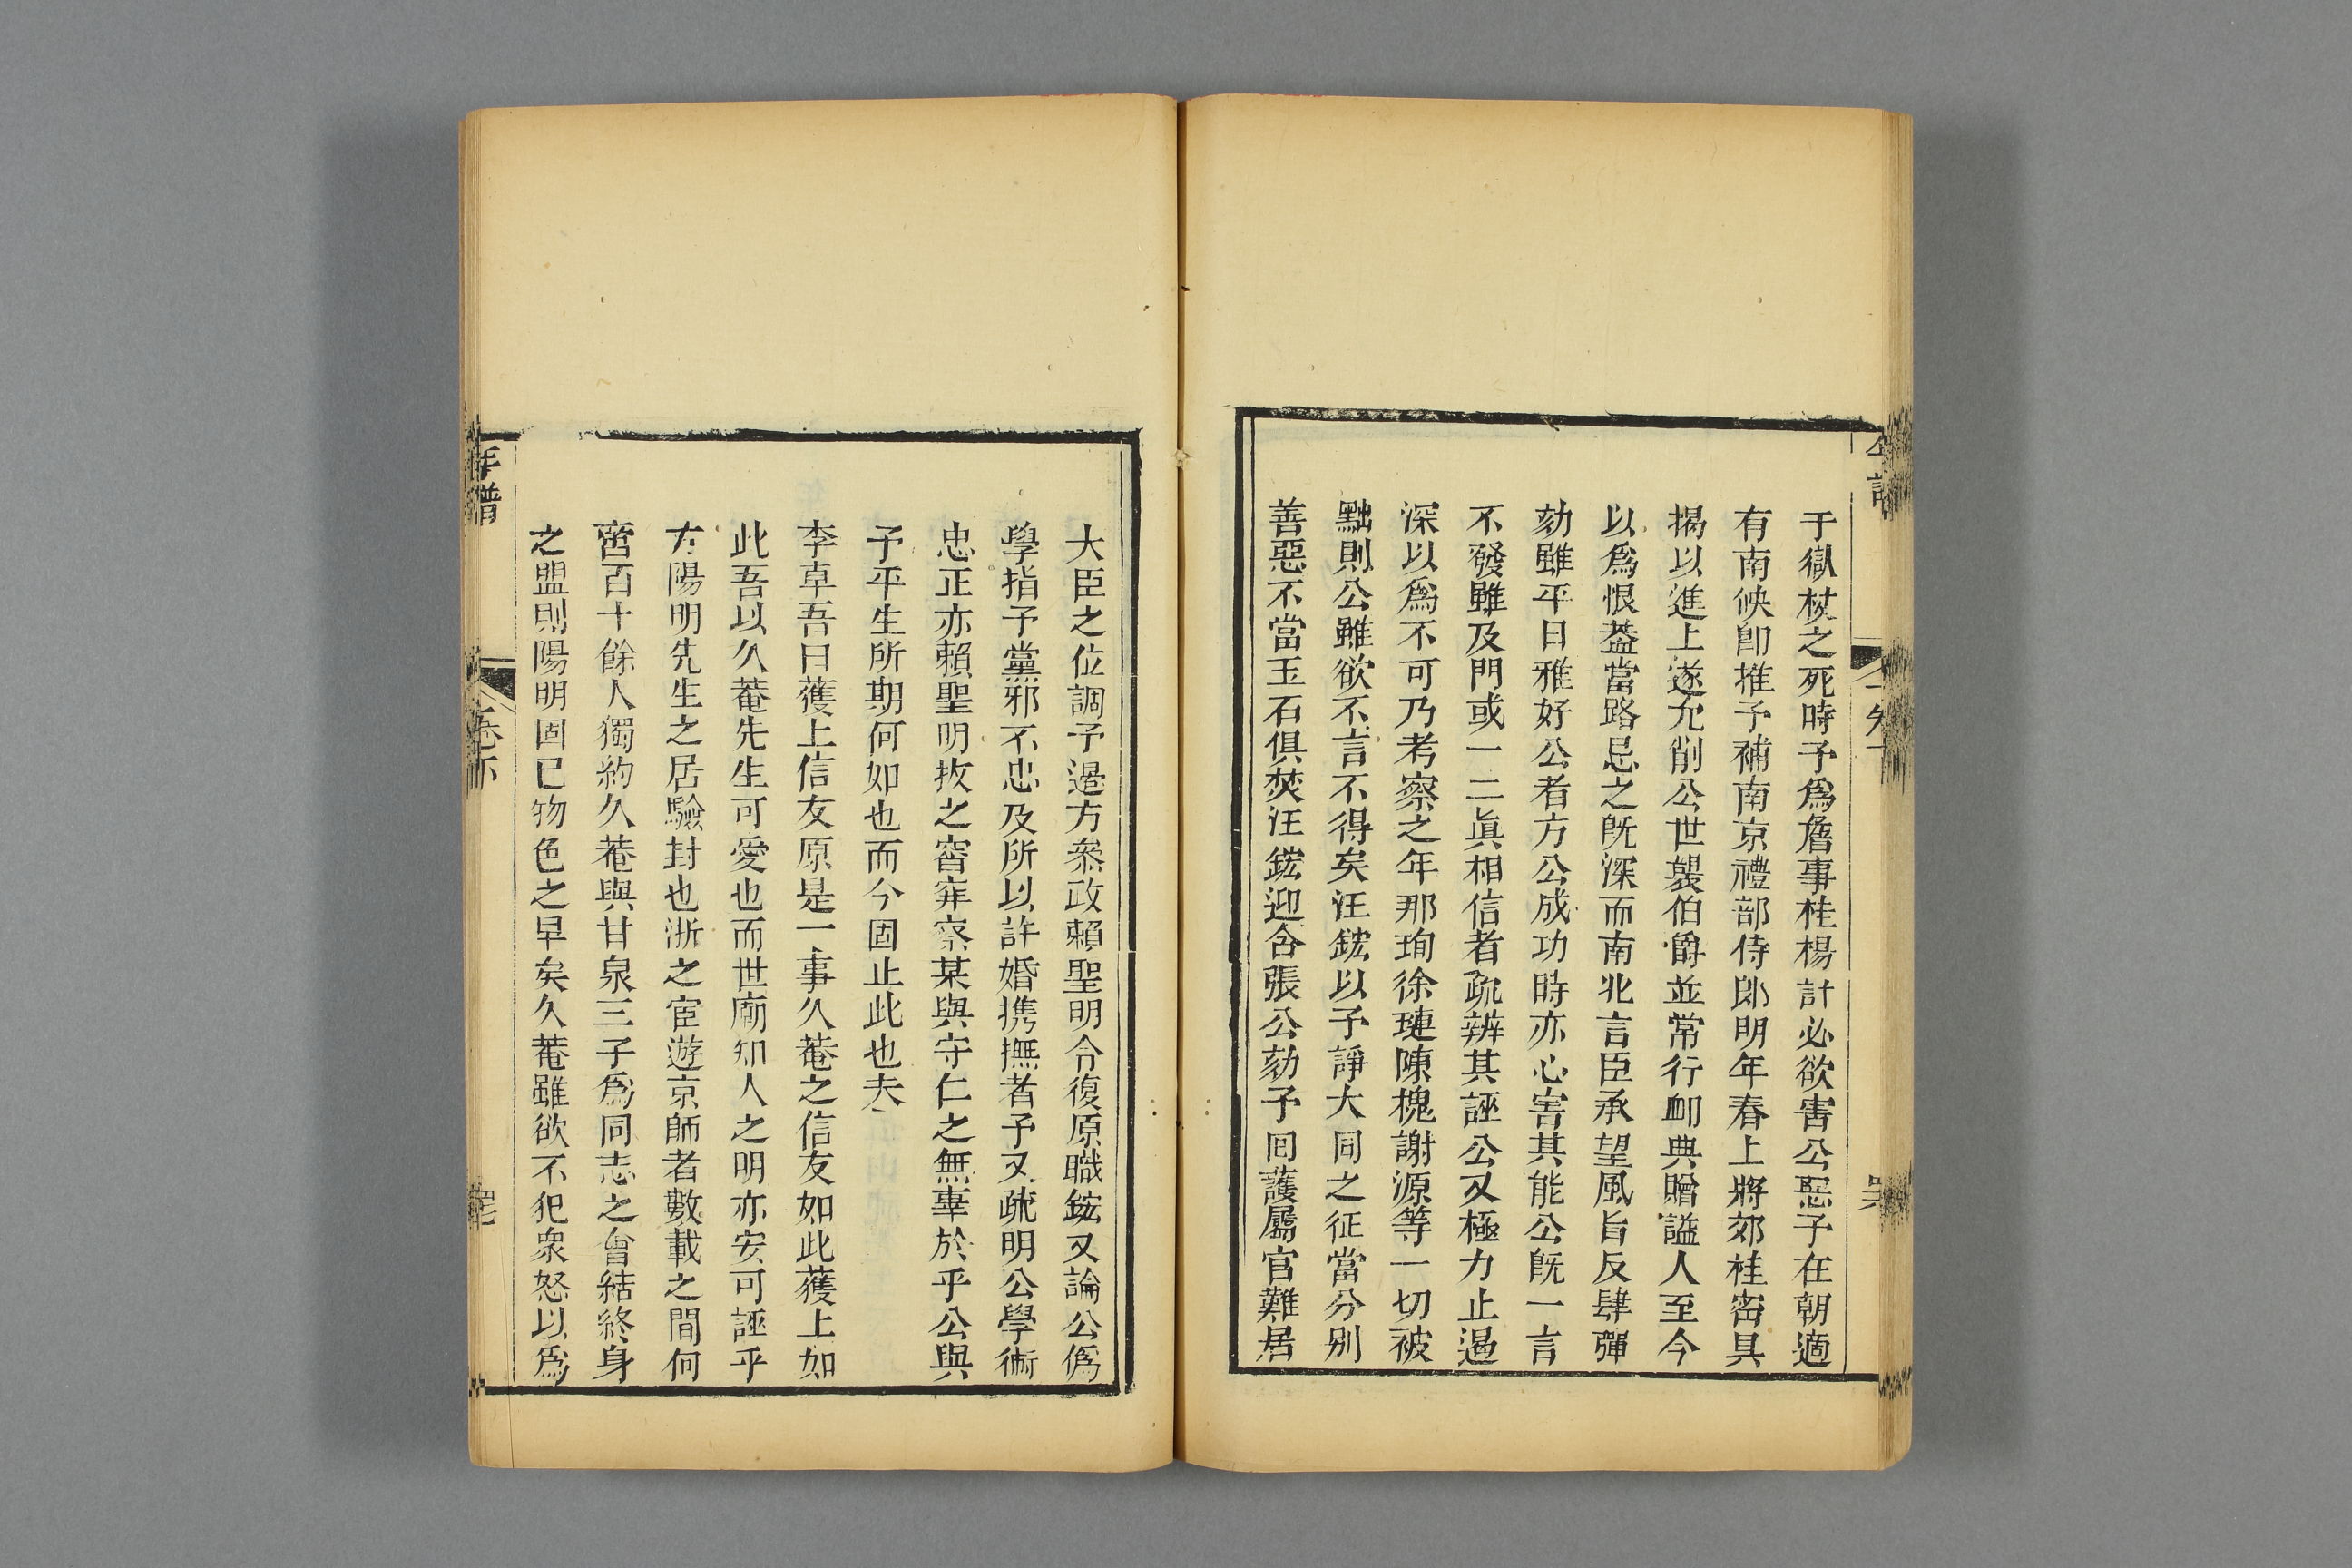 于獄杖之死時予爲詹事桂楊計必欲害公惡予在朝適
有南缺卽推予補南京禮部侍郎明年春上將郊桂密具
揭以進上遂允削公世襲伯爵並常行䘏典贈謚人至今
以爲恨葢當路忌之旣深而南北言臣承望風旨反肆彈
劾雖平日雅好公者方公成功時亦心害其能公旣一言
不發雖及門或一二眞相信者疏辨其誣公又極力止過
深以爲不可乃考察之年那珣徐璉陳槐謝源等一切被
黜則公雖欲不言不得矣汪鋐以予諍大同之征當分別
善惡不當玉石俱焚汪鋐迎合張公劾予回護屬官難居
大臣之位調予邊方叅政賴聖明令復原職鋐又論公僞
學指予黨邪不忠及所以許婚携撫者予又疏明公學術
忠正亦賴聖明扳之窨穽察某與守仁之無辜於乎公與
予平生所期何如也而今固止此也夫
李卓吾曰獲上信友原是一事久菴之信友如此獲上如
此吾以久菴先生可愛也而世廟知人之明亦安可誣乎
方陽明先生之居驗封也浙之宦遊京師者數載之間何
啻百十餘人獨約久菴與甘泉三子爲同志之會結終身
之盟則陽明固已物色之早矣久菴雖欲不犯衆怒以爲
年譜
卷下